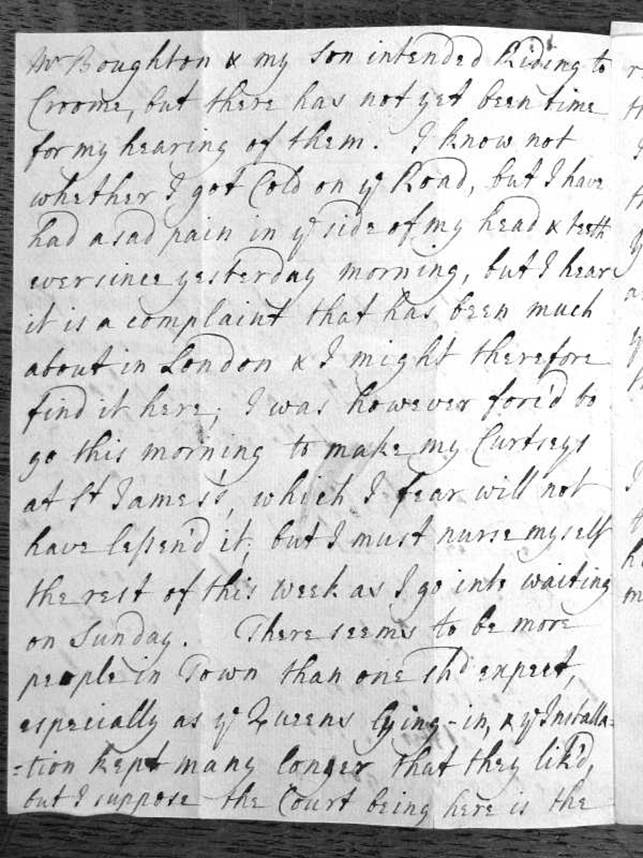 Mr Boughton & my Son intended Riding to
Croome, but there has not yet been time
for my hearing of them. I know not
whether I got Cold on ye Road, but I have
had a sad pain in ye side of my head & teeth
ever since yesterday morning, but I hear
it is a complaint that has been much
about in London & I might therefore
find it here; I was however forc'd to
go this morning to make my Curtseys
at St James's, which I fear will not
have lessen'd it, but I must nurse myself
the rest of this week as I go into waiting
on Sunday. There seems to be more
people in Town than one shd expect,
especially as ye Queens lying-in, & ye Installa=
=tion kept many longer that they lik'd,
but I suppose the Court being here is the